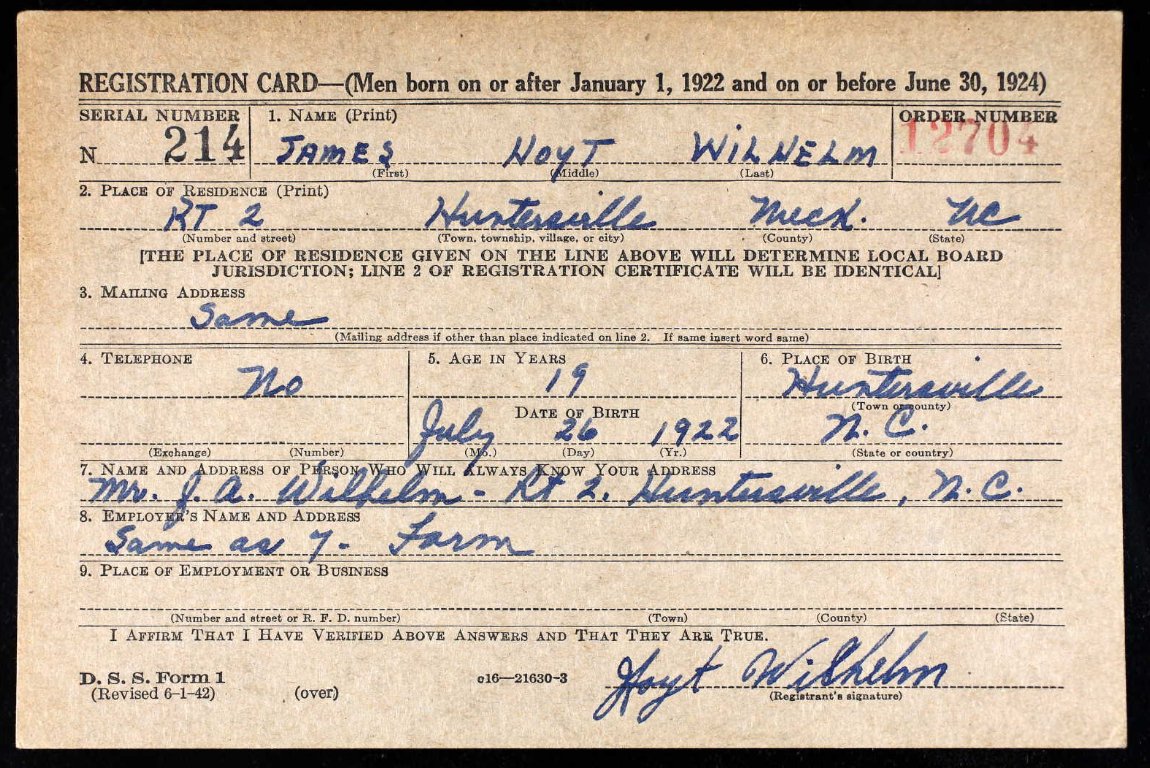 REGISTRATION CARD—(Men born on or after January 1, 1922 and on or before June 30, 1924)
SERIAL NUMBER 1. NAME (Print) ORDER NUMBER
N 214 JAMES HOYT WILHELM 12704
(First) (Middle) (Last)
2. PLACE OF RESIDENCE (Print)
RT 2 Huntersville Meck. NC
(Number and street) (Town, township, village, or city) (County) (State)
[THE PLACE OF RESIDENCE GIVEN ON THE LINE ABOVE WILL DETERMINE LOCAL BOARD
JURISDICTION; LINE 2 OF REGISTRATION CERTIFICATE WILL BE IDENTICAL]
3. MAILING ADDRESS
Same
(Mailing address if other than place indicated on line 2. If same insert word same)
4. TELEPHONE 5. AGE IN YEARS 6. PLACE OF BIRTH
No 19 Huntersville
DATE OF BIRTH (Town or county)
July 26 1922 N.C.
(Exchange) (Number) (Mo.) (Day) (Yr.) (State or country)
7. NAME AND ADDRESS OF PERSON WHO WILL ALWAYS KNOW YOUR ADDRESS
Mr. J. A. Wilhelm - Rt 2. Huntersville, N.C.
8. EMPLOYER'S NAME AND ADDRESS
Same as 7 - Farm
9. PLACE OF EMPLOYMENT OR BUSINESS
(Number and street or R. F. D. number) (Town) (County) (State)
I AFFIRM THAT I HAVE VERIFIED ABOVE ANSWERS AND THAT THEY ARE TRUE.
D. S. S. Form 1 c16—21630-3 Hoyt Wilhelm
(Revised 6-1-42) (over) (Registrant's signature)